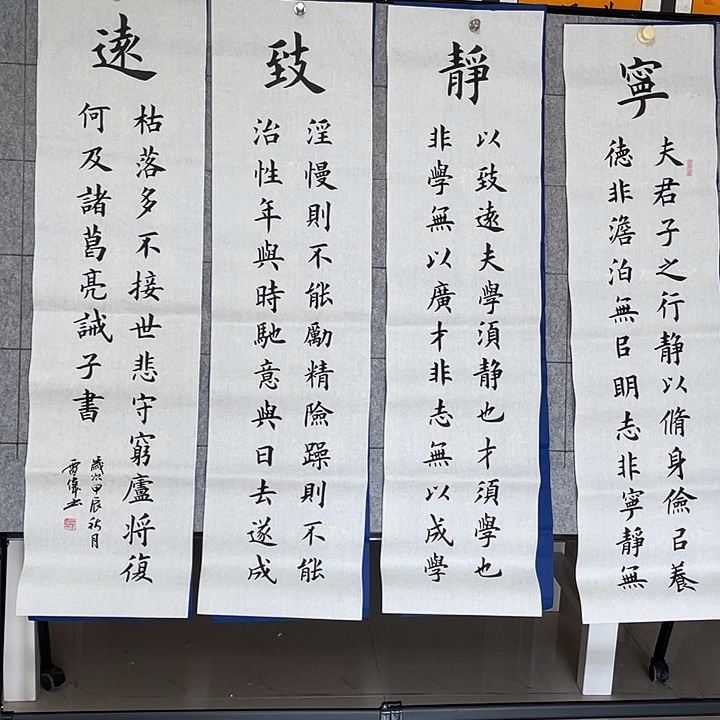 寧
夫君子之行静以脩身儉㠯養
徳非澹泊無㠯明志非寧靜無
靜
以致遠夫學須静也才須學也
非學無以廣才非志無以成學
致
淫慢則不能勵精險躁則不能
治性年與時馳意與日去遂成
遠
枯落多不接世悲守窮廬將復
何及諸葛亮誡子書
歲次甲辰秋月